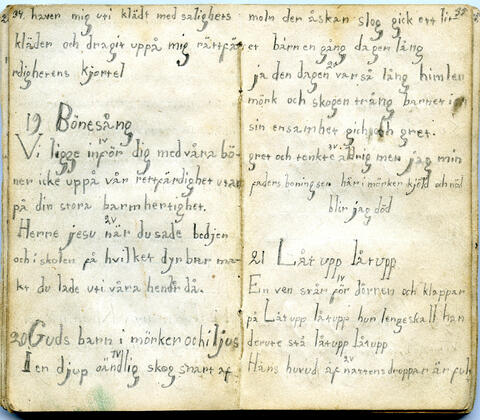 34. haver mig uti klädt med salighets
kläder och dragit uppå mig rättfä
rdigherens kjortel
19 Bönesång
1V
Vi ligge inför dig med våra bö-
ner icke uppå vår rettfärdighet utan
på din stora barmhertighet.
2V
Herre jesu när du sade bedjen
och i skolen få hvilket dyrbar ma-
kt du lade uti våra hender då.
20 Guds barn i mörker och i ljus
1V
I en djup oändlig skog snart af
35
moln der åskan slog gick ett lit
et barn en gång dagen lång
2V
ja den dagen var så lång himlen
mörk och skogen trång barnet i
sin ensamhet gick och gret.
3V.
gret och tenkte aldrig mer jag min
faders boning ser här i mörker kjöld och nöd
blir jag död
21 Låt upp låt upp
1V
En ven står för dörren och klappar
på Låt upp låt upp hur lenge skall han
derute stå låt upp låt upp
2V
Hans huvud af nattens droppar är full